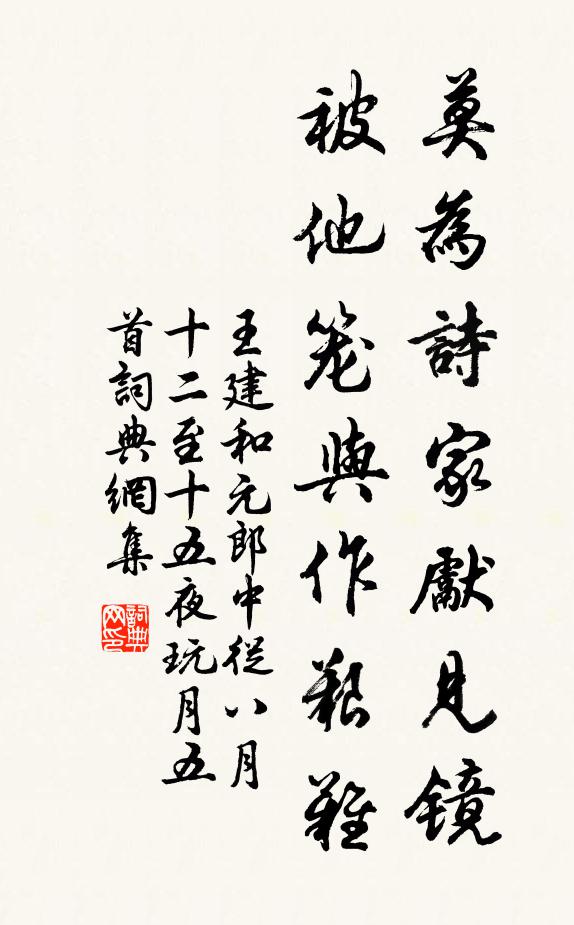 莫為詩家獻見鏡
被他笼與作艱難
王建和元郎中從八月
十二至十五夜玩月五
首詞典網集
詞典
网印